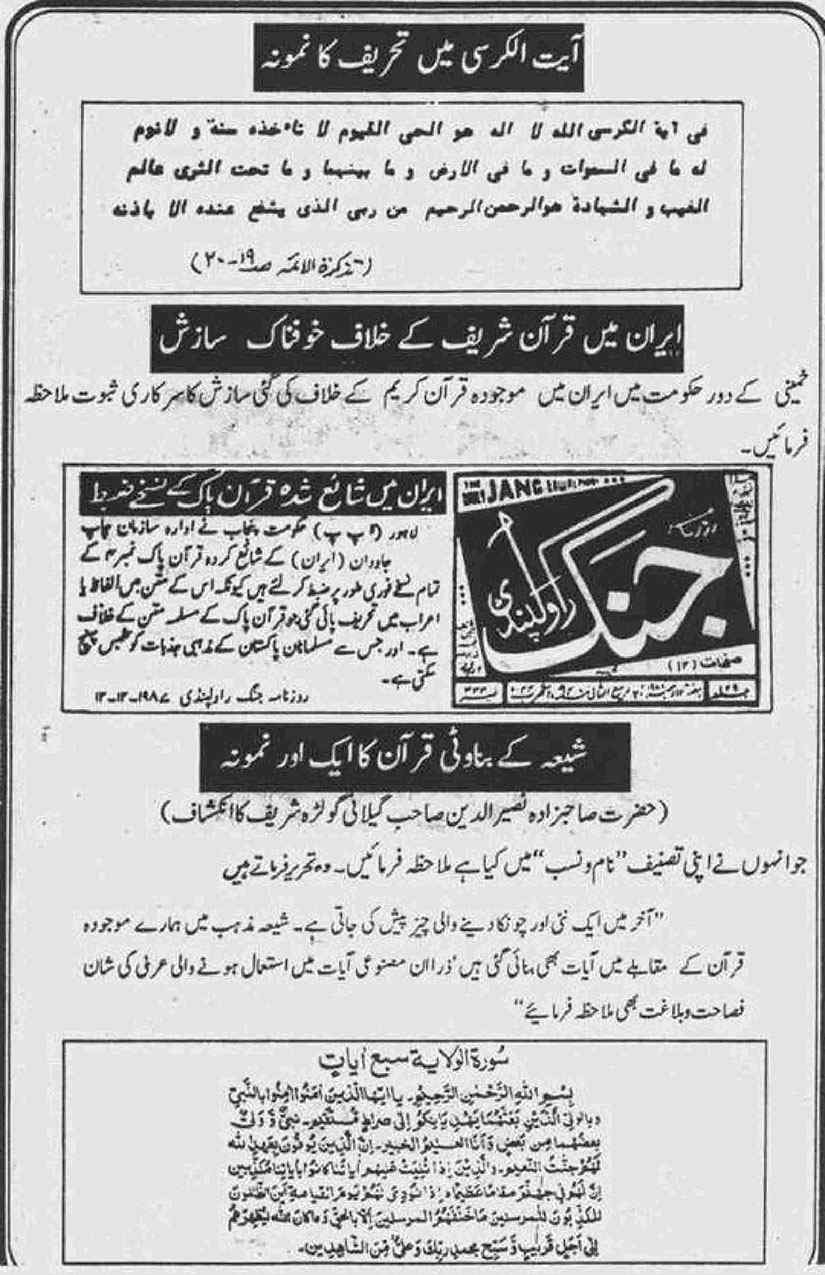 آیت الکرسی میں تحریف کا نمونہ
فی آیة الکرسی الله لا اله هو الحی القیوم لا تاءخذه سنة و لانوم
له ما فی السموات و ما فی الارض و ما بینهما و ما تحت الثری عالم
الغیب و الشهادة هوالرحمن الرحیم من ربی الذی یشفع عنده الا باذنه
(تذکرة الائمه ص۱۹-۲۰)
ایران میں قرآن شریف کے خلاف خوفناک سازش
خمینی کے دور حکومت میں ایران میں موجودہ قرآن کریم کے خلاف کی گئی سازش کا سرکاری ثبوت ملاحظہ
فرمائیں۔
ایران میں شائع شدہ قرآن پاک کے نسخے ضبط
لاہور (اپ پ) حکومت پنجاب نے ادارہ سازمان چاپ
جاودان (ایران) کے شائع کردہ قرآن پاک نمبر ۴ کے
تمام نسخے فوری طور پر ضبط کر لئے ہیں کیونکہ اس کے متن میں الفاظ یا
اعراب میں تحریف پائی گئی جو قرآن پاک کے مسلمہ متن کے خلاف
ہے۔ اور جس سے مسلمانان پاکستان کے مذہبی جذبات کو ٹھیس پہنچ
سکتی ہے۔
روزنامہ جنگ راولپنڈی ۱۹۸۷-۱۲-۱۲
THE DAILY JANG
روزنامہ
جنگ
راولپنڈی
صفحات (۱۲)
جلد ۲۹
شیعہ کے بناوٹی قرآن کا ایک اور نمونہ
(حضرت صاحبزادہ نصیر الدین صاحب گیلانی گولڑہ شریف کا انکشاف)
جو انہوں نے اپنی تصنیف ”نام و نسب“ میں کیا ہے ملاحظہ فرمائیں۔ وہ تحریر فرماتے ہیں
”آخر میں ایک نئی اور چونکا دینے والی چیز پیش کی جاتی ہے۔ شیعہ مذہب میں ہمارے موجودہ
قرآن کے مقابلے میں آیات بھی بنائی گئی ہیں‘ ذرا ان مصنوعی آیات میں استعمال ہونے والی عربی کی شان
فصاحت و بلاغت بھی ملاحظہ فرمایئے“
سُورة الولایة سبع اٰیات
بِسْمِ اللهِ الرَّحْمٰنِ الرَّحِیْمِ۔ یا ایها الذین اٰمَنُوا اٰمِنُوا بالنَّبیِّ
وبالولی الَّذَیْنِ بَعَثْنٰهُمَا یَهْدِیَانِکُمْ اِلٰی صِرَاطٍ مُّسْتَقِیْمٍ۔ نَبِیٌّ وَّ وَلِیٌّ
بَعْضُهُمَا مِنْ بَعْضٍ وَّاَنَا الْعَلِیْمُ الْخَبِیْرُ۔ اِنَّ الَّذِیْنَ یُوْفُوْنَ بِعَهْدِ اللهِ
لَهُمْ جَنّٰتُ النَّعِیْمِ۔ وَالَّذِیْنَ اِذَا تُلِیَتْ عَلَیْهِمْ اٰیَاتُنَا کَانُوْا بِاٰیَاتِنَا مُکَذِّبِیْنَ
اِنَّ لَهُمْ فِیْ جَهَنَّمَ مَقَامًا عَظِیْمًا اِذَا نُوْدِیَ لَهُمْ یَوْمَ الْقِیَامَةِ اَیْنَ الظّٰلِمُوْنَ
الْمُکَذِّبُوْنَ لِلْمُرْسَلِیْنَ مَا خَلَقَهُمُ الْمُرْسَلِیْنَ اِلَّا بِالْحَقِّ وَ مَا کَانَ اللهُ لِیُظْهِرَهُمْ
اِلٰی اَجَلٍ قَرِیْبٍ وَّ سَبِّحْ بِحَمْدِ رَبِّكَ وَ عَلِیٌّ مِّنَ الشَّاهِدِیْنَ۔